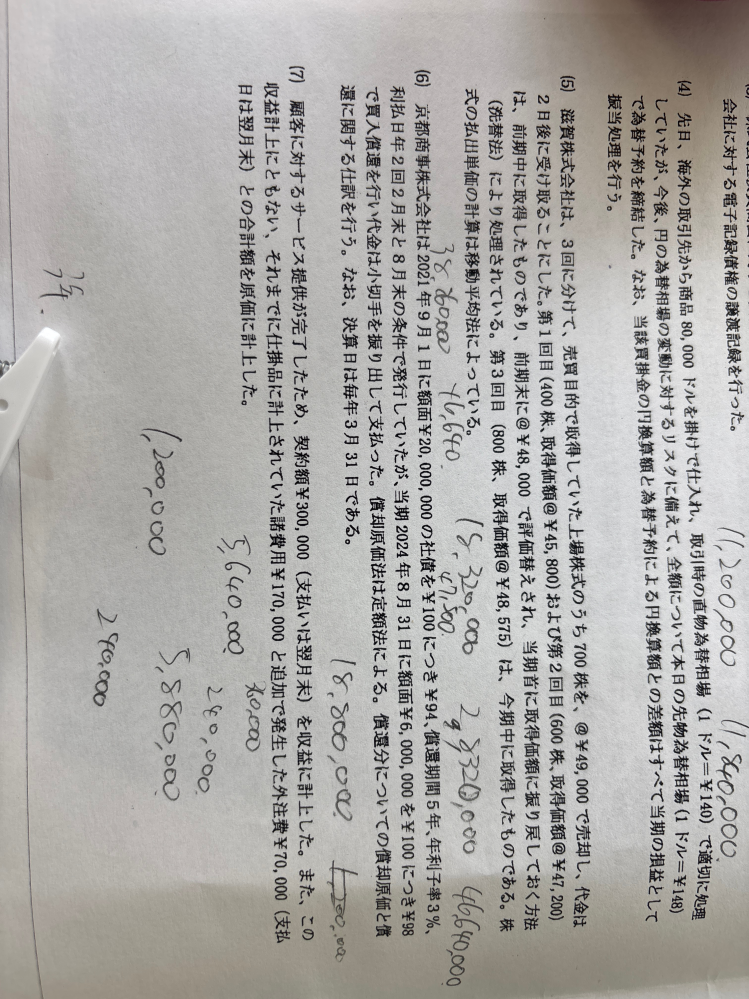 会社に対する電子記録債権の譲渡記録を行った。
11,200,000 11,840,000
(4) 先日、海外の取引先から商品 80,000 ドルを掛けで仕入れ、取引時の直物為替相場 (1 ドル=¥140) で適切に処理
していたが、今後、円の為替相場の変動に対するリスクに備えて、全額について本日の先物為替相場 (1 ドル=¥148)
で為替予約を締結した。なお、当該買掛金の円換算額と為替予約による円換算額との差額はすべて当期の損益として
振当処理を行う。
(5) 滋賀株式会社は、3回に分けて、売買目的で取得していた上場株式のうち 700 株を、@¥49,000 で売却し、代金は
2日後に受け取ることにした。第1回目 (400 株、取得価額@¥45,800) および第2回目 (600 株、取得価額@¥47,200)
は、前期中に取得したものであり、前期末に@¥48,000 で評価替えされ、当期首に取得価額に振り戻しておく方法
(洗替法) により処理されている。第3回目 (800 株、取得価額@¥48,575) は、今期中に取得したものである。株
式の払出単価の計算は移動平均法によっている。
18,320,000 28,320,000 46,640,000
38,860,000 46,640 47,500
(6) 京都商事株式会社は 2021 年 9 月 1 日に額面¥20,000,000 の社債を¥100 につき¥94、償還期間 5 年、年利子率 3%、
利払日年 2 回 2 月末と 8 月末の条件で発行していたが、当期 2024 年 8 月 31 日に額面¥6,000,000 を¥100 につき¥98
で買入償還を行い代金は小切手を振り出して支払った。償却原価法は定額法による。償還分についての償却原価と償
還に関する仕訳を行う。なお、決算日は毎年 3 月 31 日である。
18,800,000 1,200,000
(7) 顧客に対するサービス提供が完了したため、契約額¥300,000 (支払いは翌月末) を収益に計上した。また、この
収益計上にともない、それまでに仕掛品に計上されていた諸費用¥170,000 と追加で発生した外注費¥70,000 (支払
日は翌月末) との合計額を原価に計上した。
5,640,000
240,000
5,880,000
1,200,000
240,000